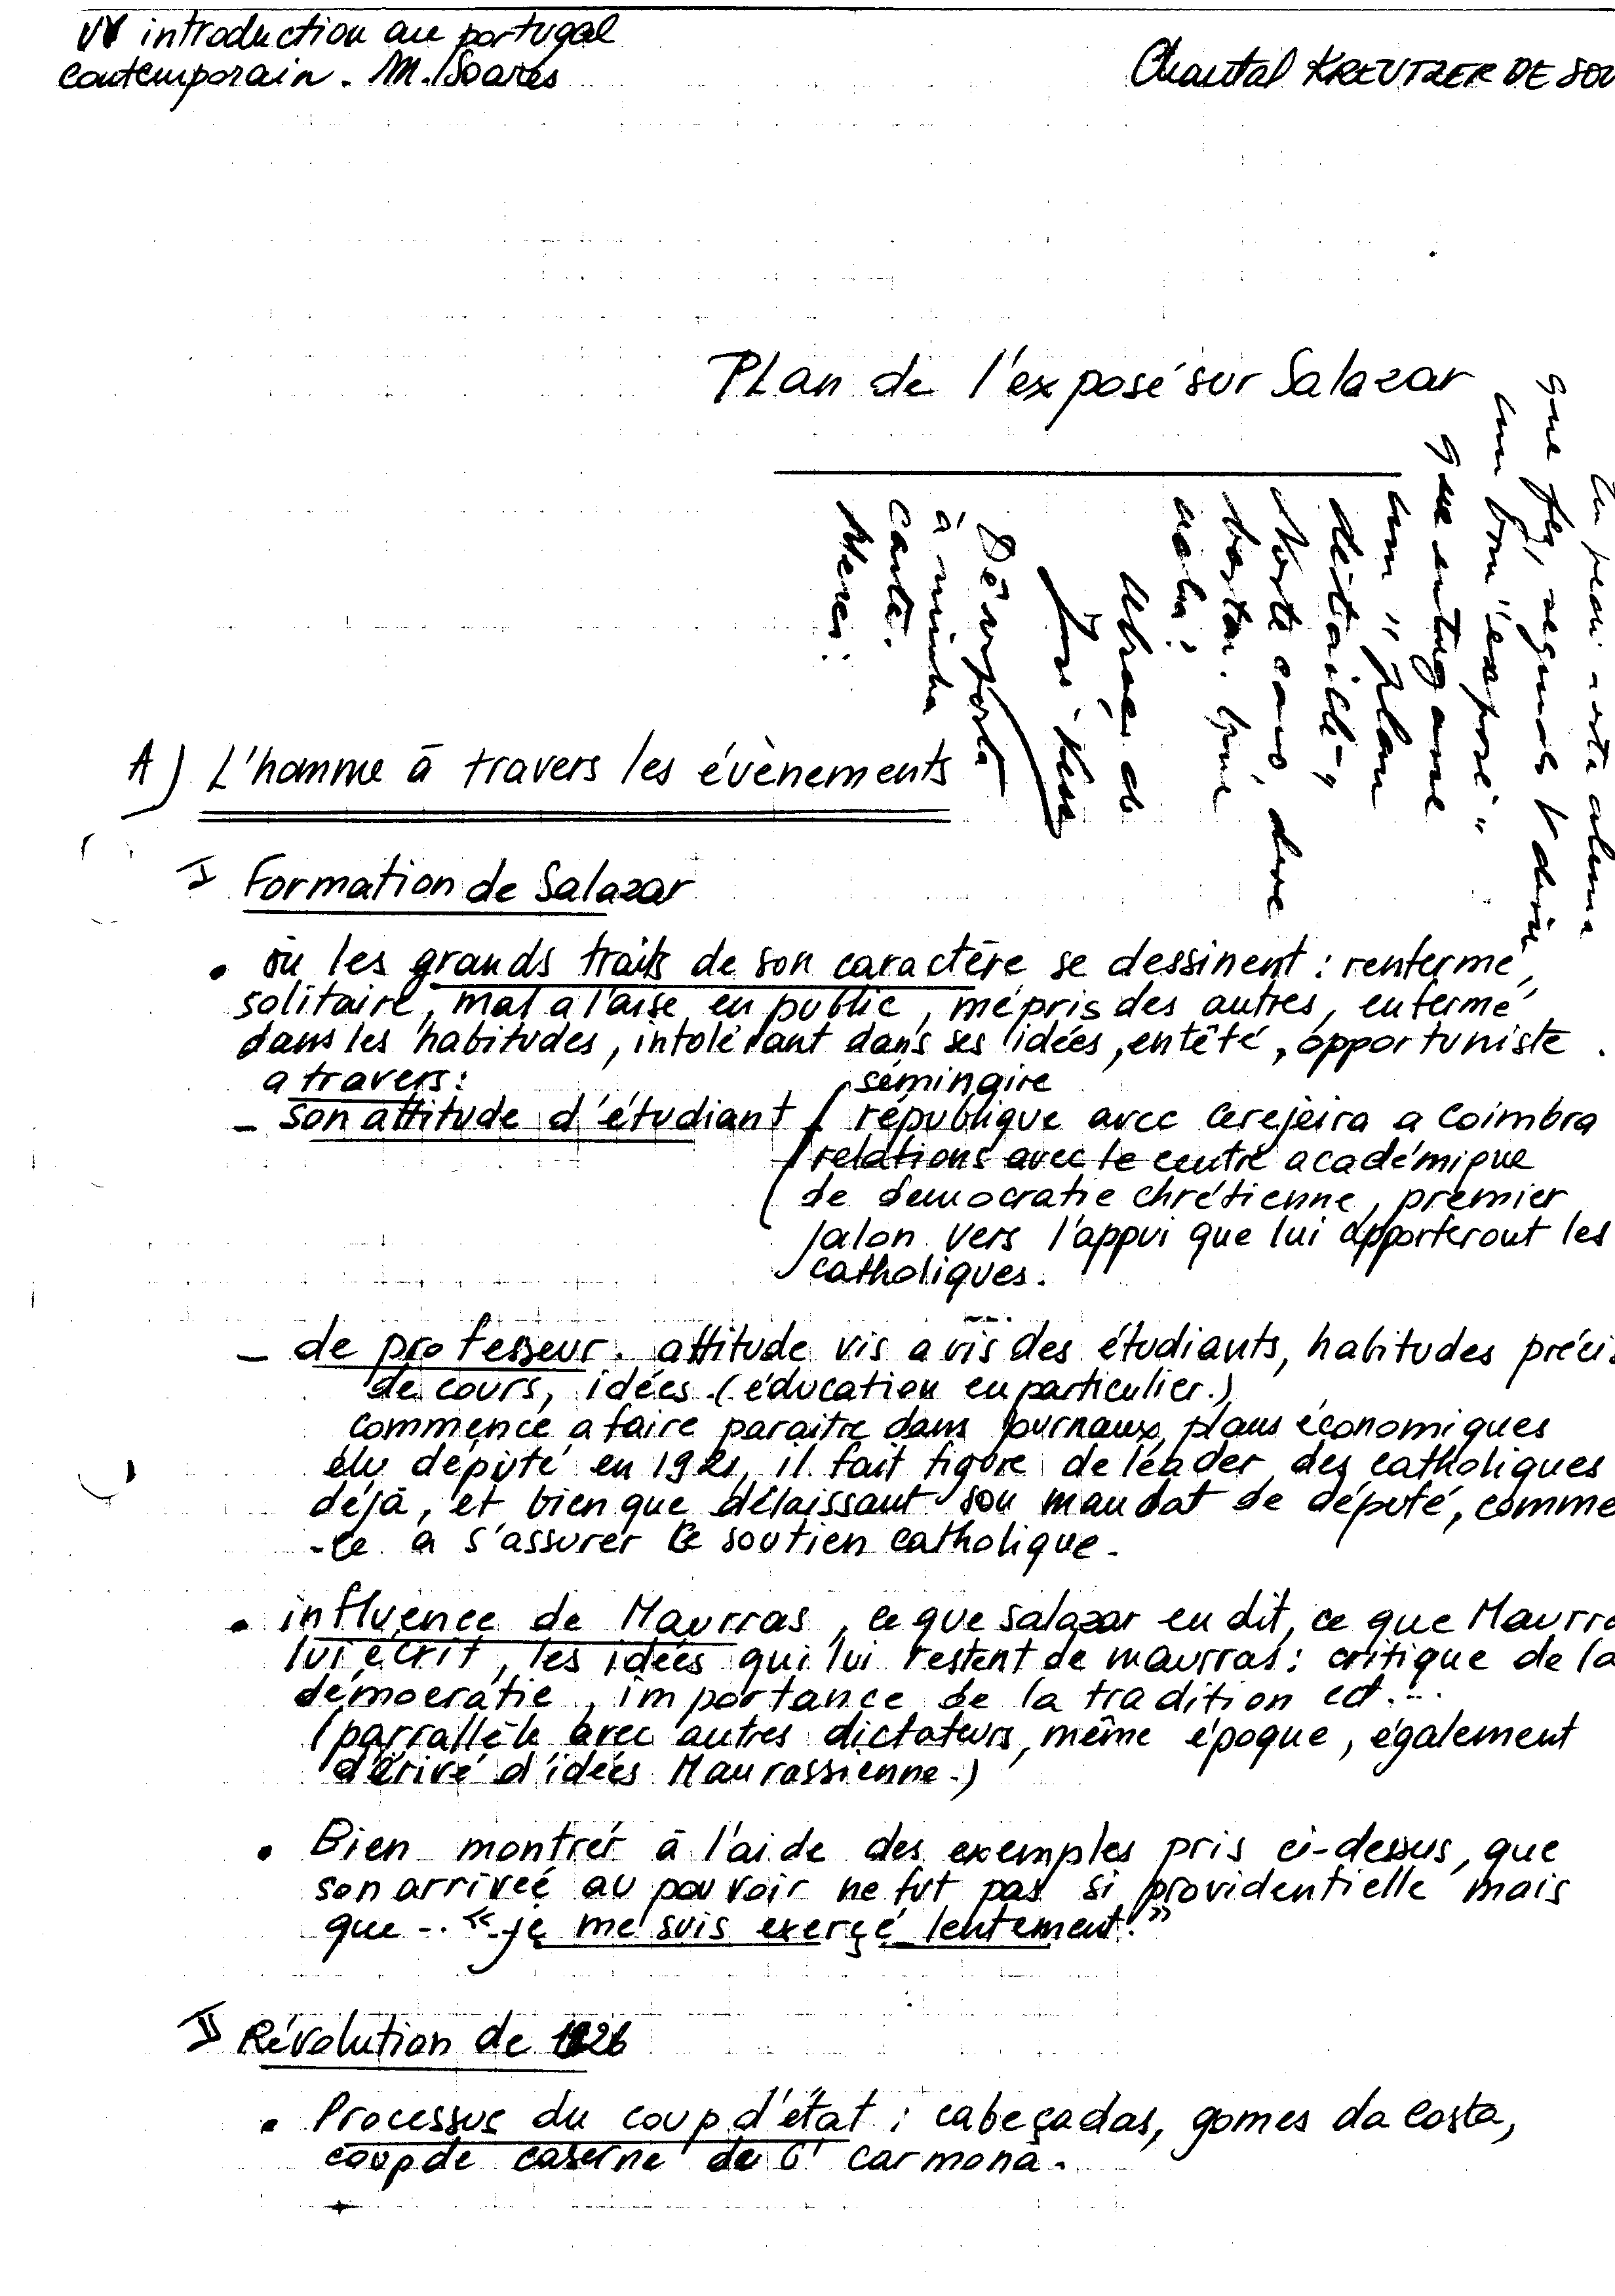 UV introduction au portugal
contemporain. M. Soares
Chantal KREUTZER DE SOU
PLan de l'exposé sur Salazar
Eu pedi a esta aluna
que fez, segundo
um bom "exposé"
que entregasse
um "plan
détaillé",
Neste caso, deve
bastar. Que
acha?
Abraço do
Dê resposta
à minha
carta.
A) L'homme à travers les évènements
I Formation de Salazar
• où les grands traits de son caractère se dessinent : renfermé,
solitaire, mal a l'aise en public, mépris des autres, enfermé
dans les habitudes, intolérant dans ses idées, entêté, opportuniste.
a travers:
séminaire
- son attitude d'étudiant république avec Cerejeira a Coimbra
relations avec le centre académique
de democratie chrétienne, premier
jalon vers l'appui que lui apporteront les
catholiques.
- de professeur. attitude vis a vis des étudiants, habitudes précis
de cours, idées (éducation en particulier.)
commence a faire paraitre dans journaux plans économiques
élu député en 1921, il fait figure de léader des catholiques
déjà, et bien que délaissant son mandat de député, comme
-ce a s'assurer le soutien catholique.
• influence de Maurras, ce que salazar en dit, ce que Maurra
lui écrit, les idées qui lui restent de maurras: critique de la
démocratie, importance de la tradition ect...
(parrallèle avec autres dictateurs, même époque, également
dérivé d'idées Maurassienne.)
• Bien montrer à l'aide des exemples pris ci-dessus, que
son arrivée au pouvoir ne fut pas si providentielle mais
que .. « je me suis exerçé lentement. »
II Révolution de 1926
• Processus du coup d'état : cabeçadas, gomes da costa,
coup de caserne de Gl carmona.